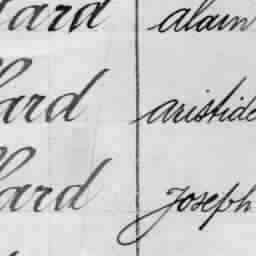 ard alain
ard aristide
ard Joseph